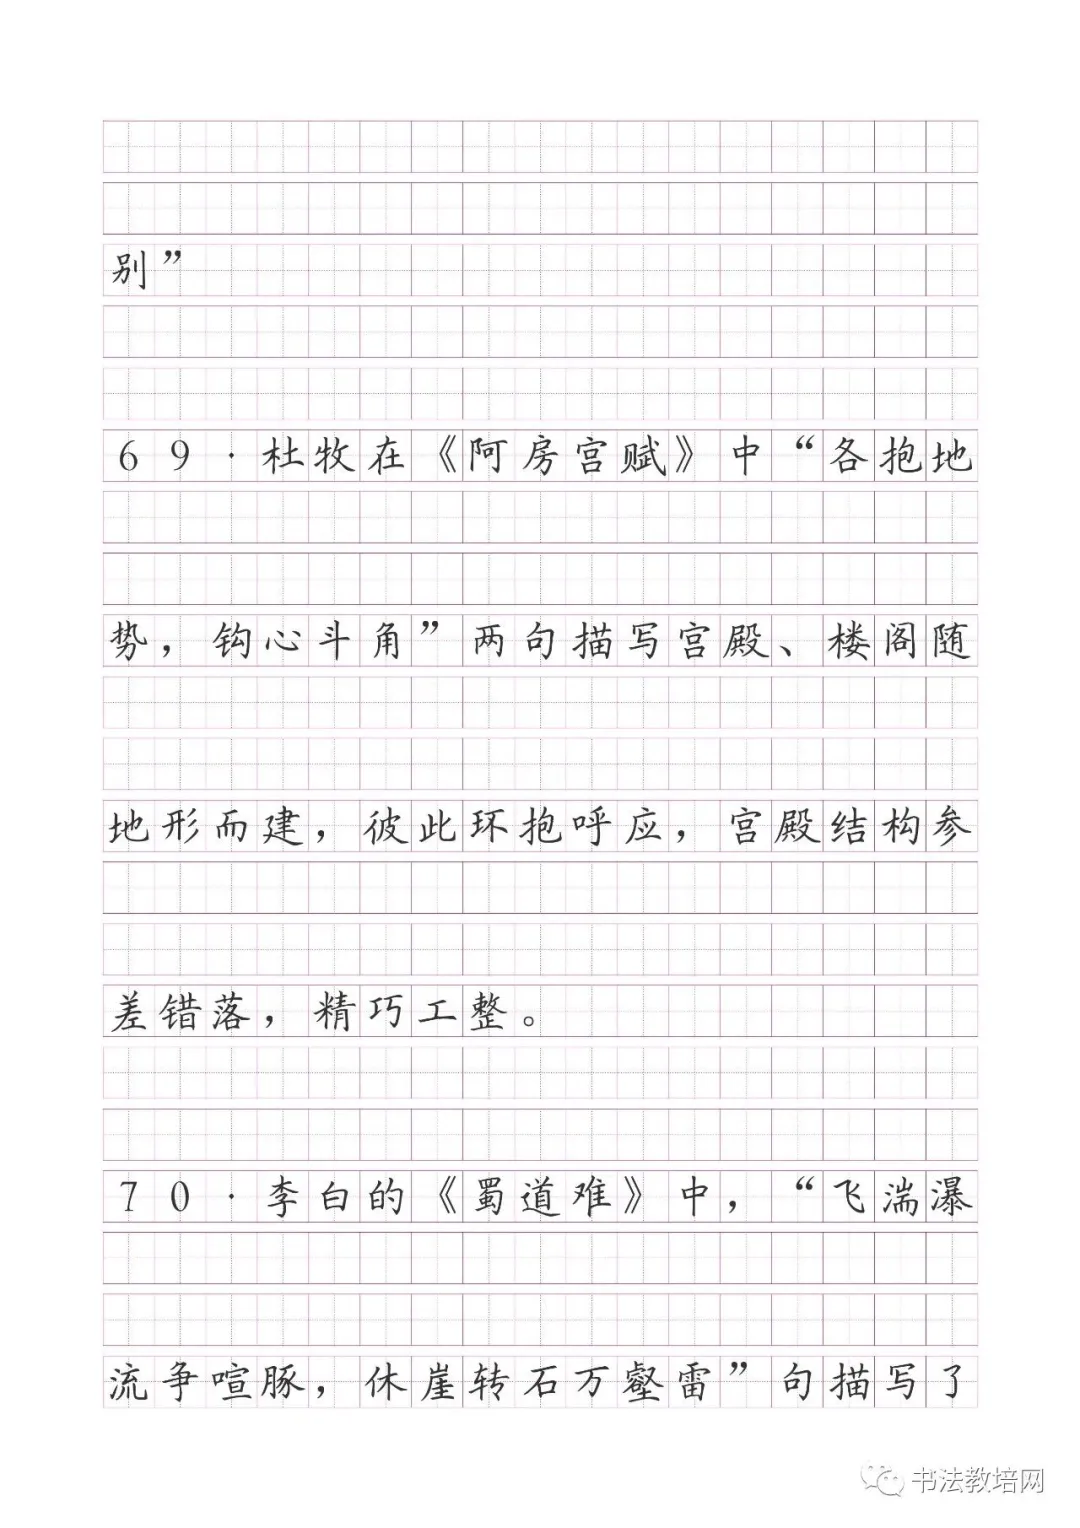 别”
69·杜牧在《阿房宫赋》中“各抱地
势，钩心斗角”两句描写宫殿、楼阁随
地形而建，彼此环抱呼应，宫殿结构参
差错落，精巧工整。
70·李白的《蜀道难》中，“飞湍瀑
流争喧豚，休崖转石万壑雷”句描写了
书法教培网